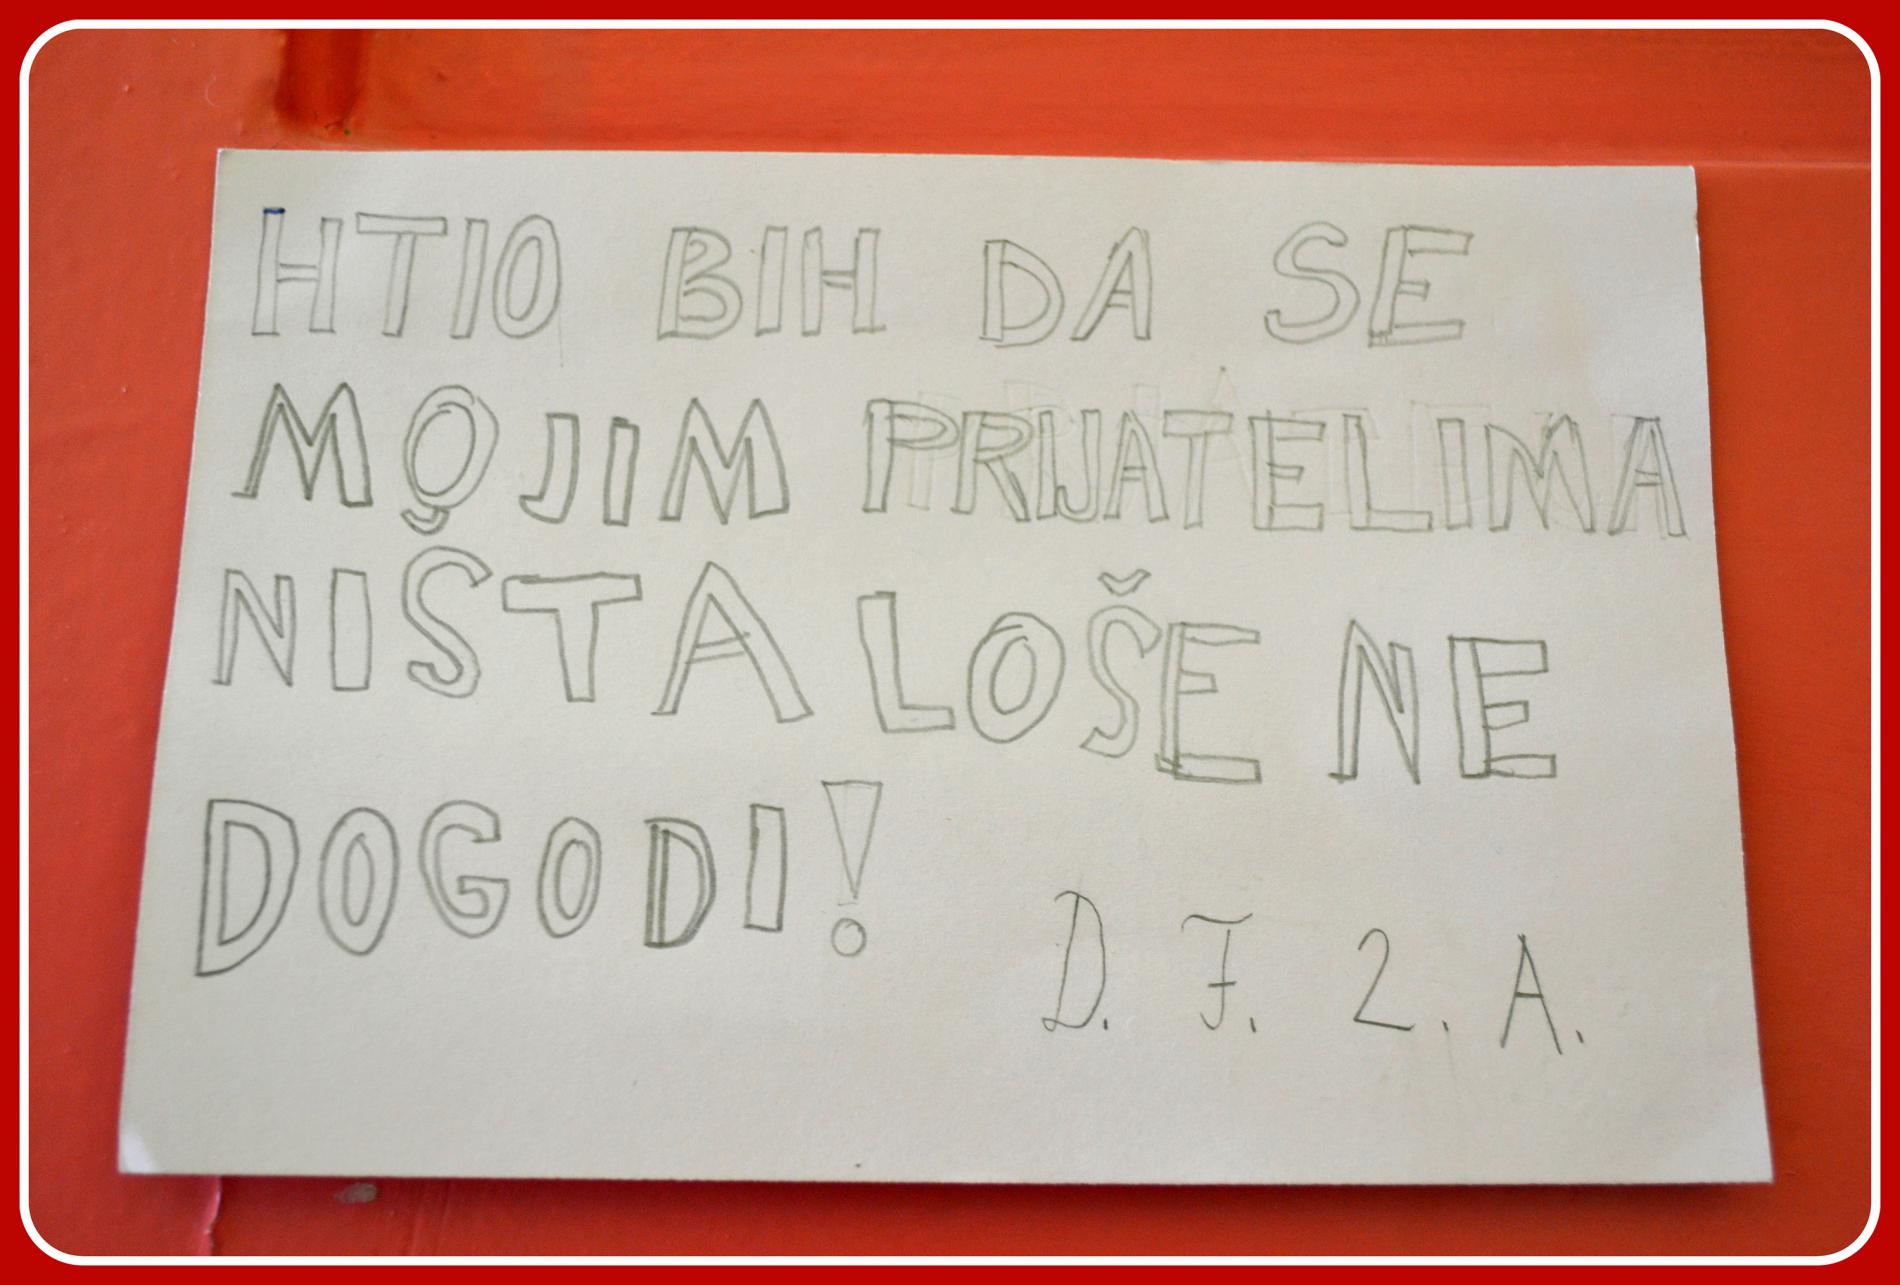 HTIO BIH DA SE
MOJIM PRIJATELIMA
NIŠTA LOŠE NE
DOGODI!
D. F. 2. A.